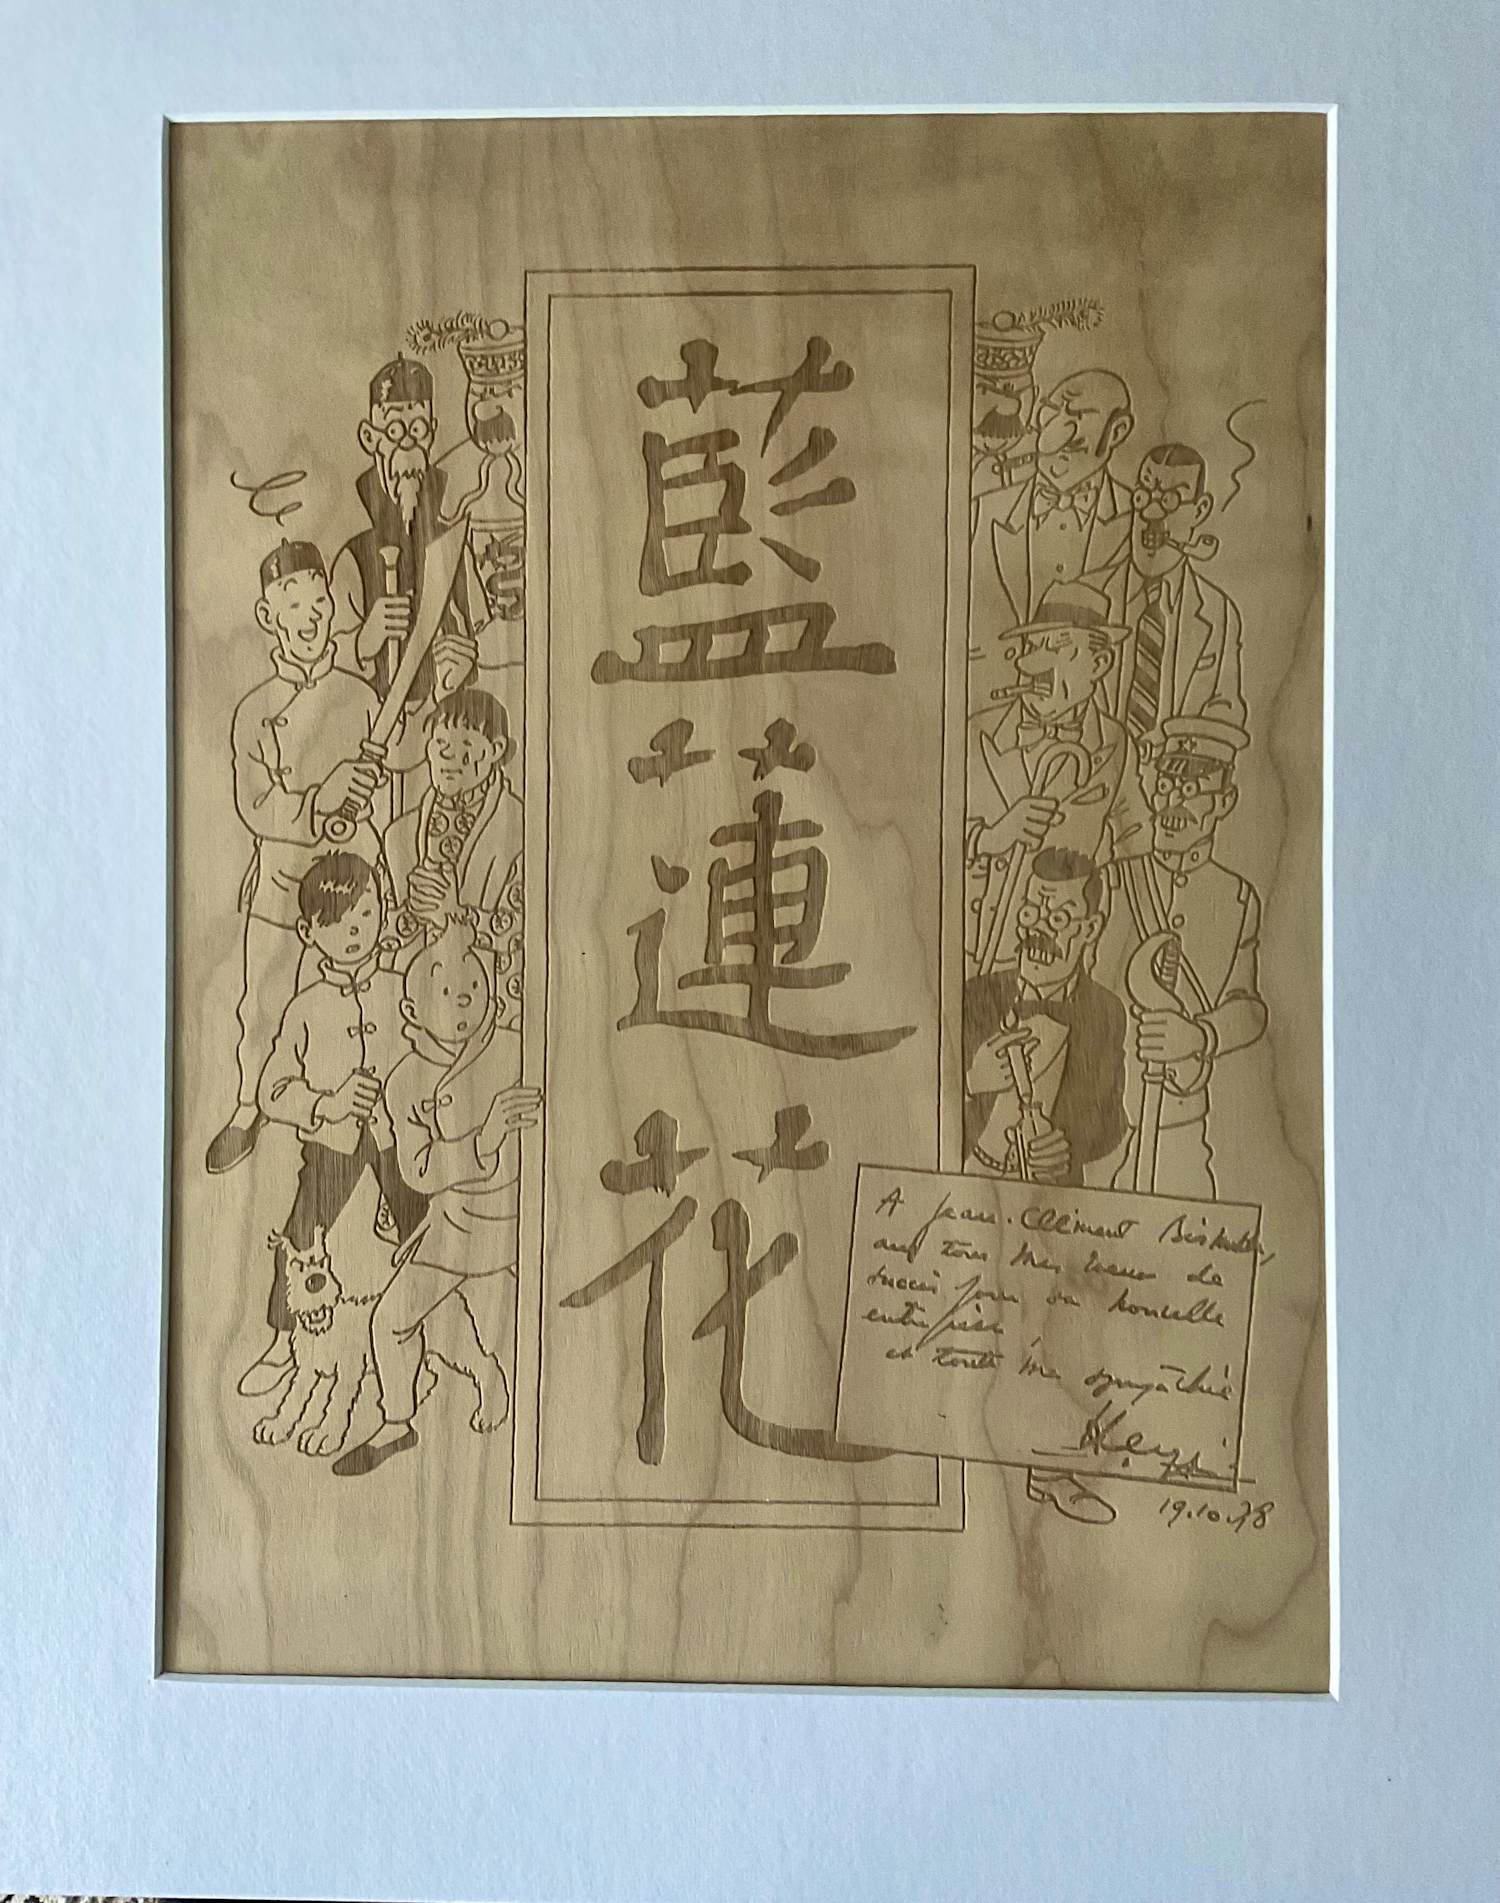 藍蓮花
A Jean-Clément
avec tous mes vœux de
succès pour sa nouvelle
entreprise,
et toute ma sympathie
Hergé
19.10.78